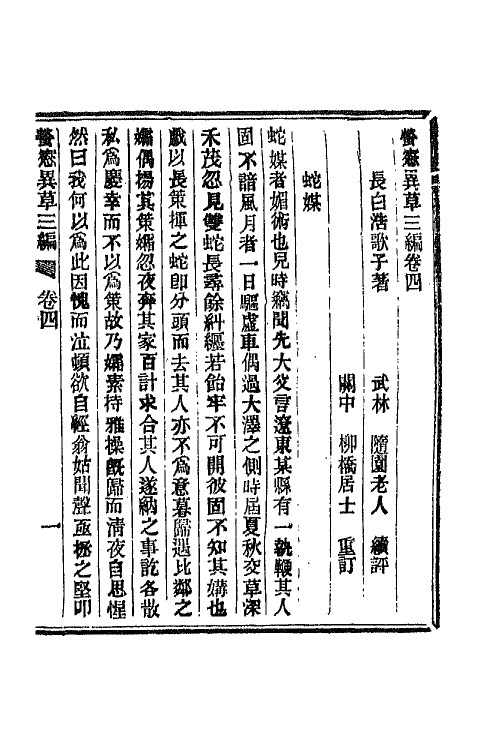 螢窓異草三編卷四
長白浩歌子著　武林　隨園老人　續評
關中　柳橋居士　重訂
蛇媒
蛇媒者媚術也兒時竊聞先大父言遼東某縣有一執鞭其人
固不諳風月者一日驅虛車偶過大澤之側時屆夏秋交草深
禾茂忽見雙蛇長尋餘糾纒若飴牢不可開彼固不知其媾也
戲以長策揮之蛇卽分頭而去其人亦不爲意暮歸遇比鄰之
孀偶揚其策孀忽夜奔其家百計求合其人遂納之事訖各散
私爲慶幸而不以爲策故乃孀素持雅操旣歸而淸夜自思惺
然曰我何以爲此因愧而泣頓欲自經翁姑聞聲亟拯之堅叩
螢窓異草三編　卷四　一